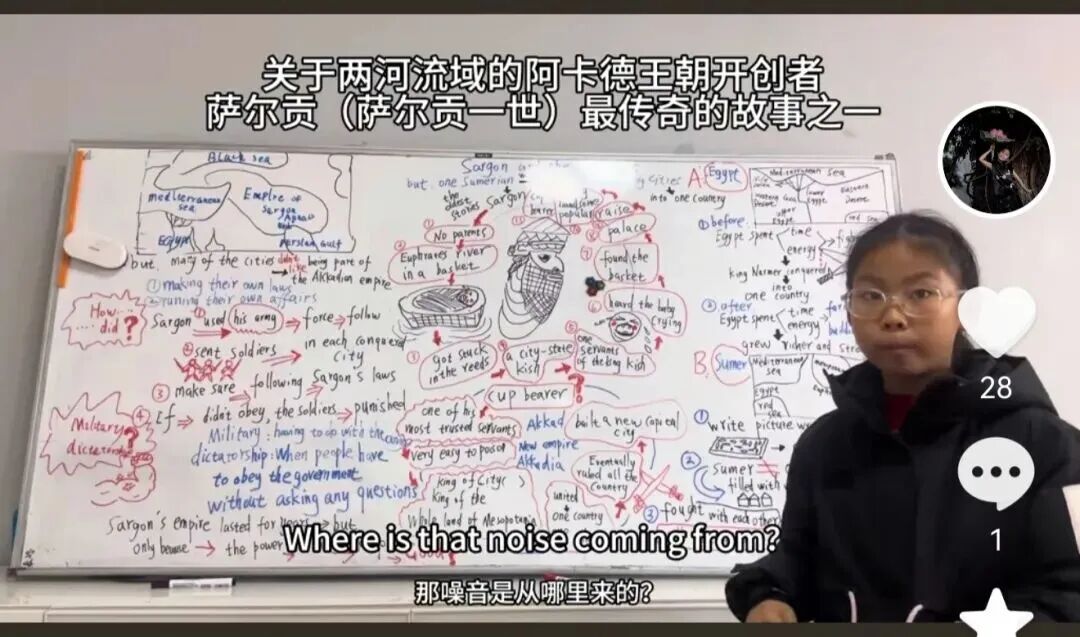 关于两河流域的阿卡德王朝开创者
萨尔贡（萨尔贡一世）最传奇的故事之一
Black sea
mediterranean sea
Empire of Sargon
Egypt
Persian Gulf
but, many of the cities didn't like being part of the Akkadian empire
① making their own laws
② running their own affairs
How did ?
Sargon ① used his army → force → follow
② sent soldiers → in each conquered city
③ make sure → following → Sargon's laws
④ If → didn't obey, the soldiers → punished
Military dictatorship ?
Military: having to do with the
dictatorship: When people have
to obey the government
without asking any questions
Sargon's empire lasted for years → but
only because → the power
Sargon
but one Sumerian
cities into one country
the oldest stories
Sargon
No parents
Euphrates river
in a basket
got stuck
in the reeds
a city-state
kish
one servants of the king kish
heard the baby
crying
found the
basket
palace
raise
handsome
popular
cup bearer ?
one of his
most trusted servants
very easy to poison
Akkad
built a new capital city
New empire
Akkadia
Eventually
ruled all the
country
united
one country
King of City( )
King of the
Whole land of Mesopotamia
A: Egypt
Mediterranean sea
Lower Egypt
upper Egypt
Eastern Desert
Red sea
① before:
Egypt spent time
energy
King Narmer conquered
into
one country
② after
Egypt spent time
energy
grew richer and
B. Sumer
Mediterranean sea
Egypt
red sea
① write picture
② Sumer
filled with
③ fought with each other
Where is that noise coming from?
那噪音是从哪里来的？
28
1